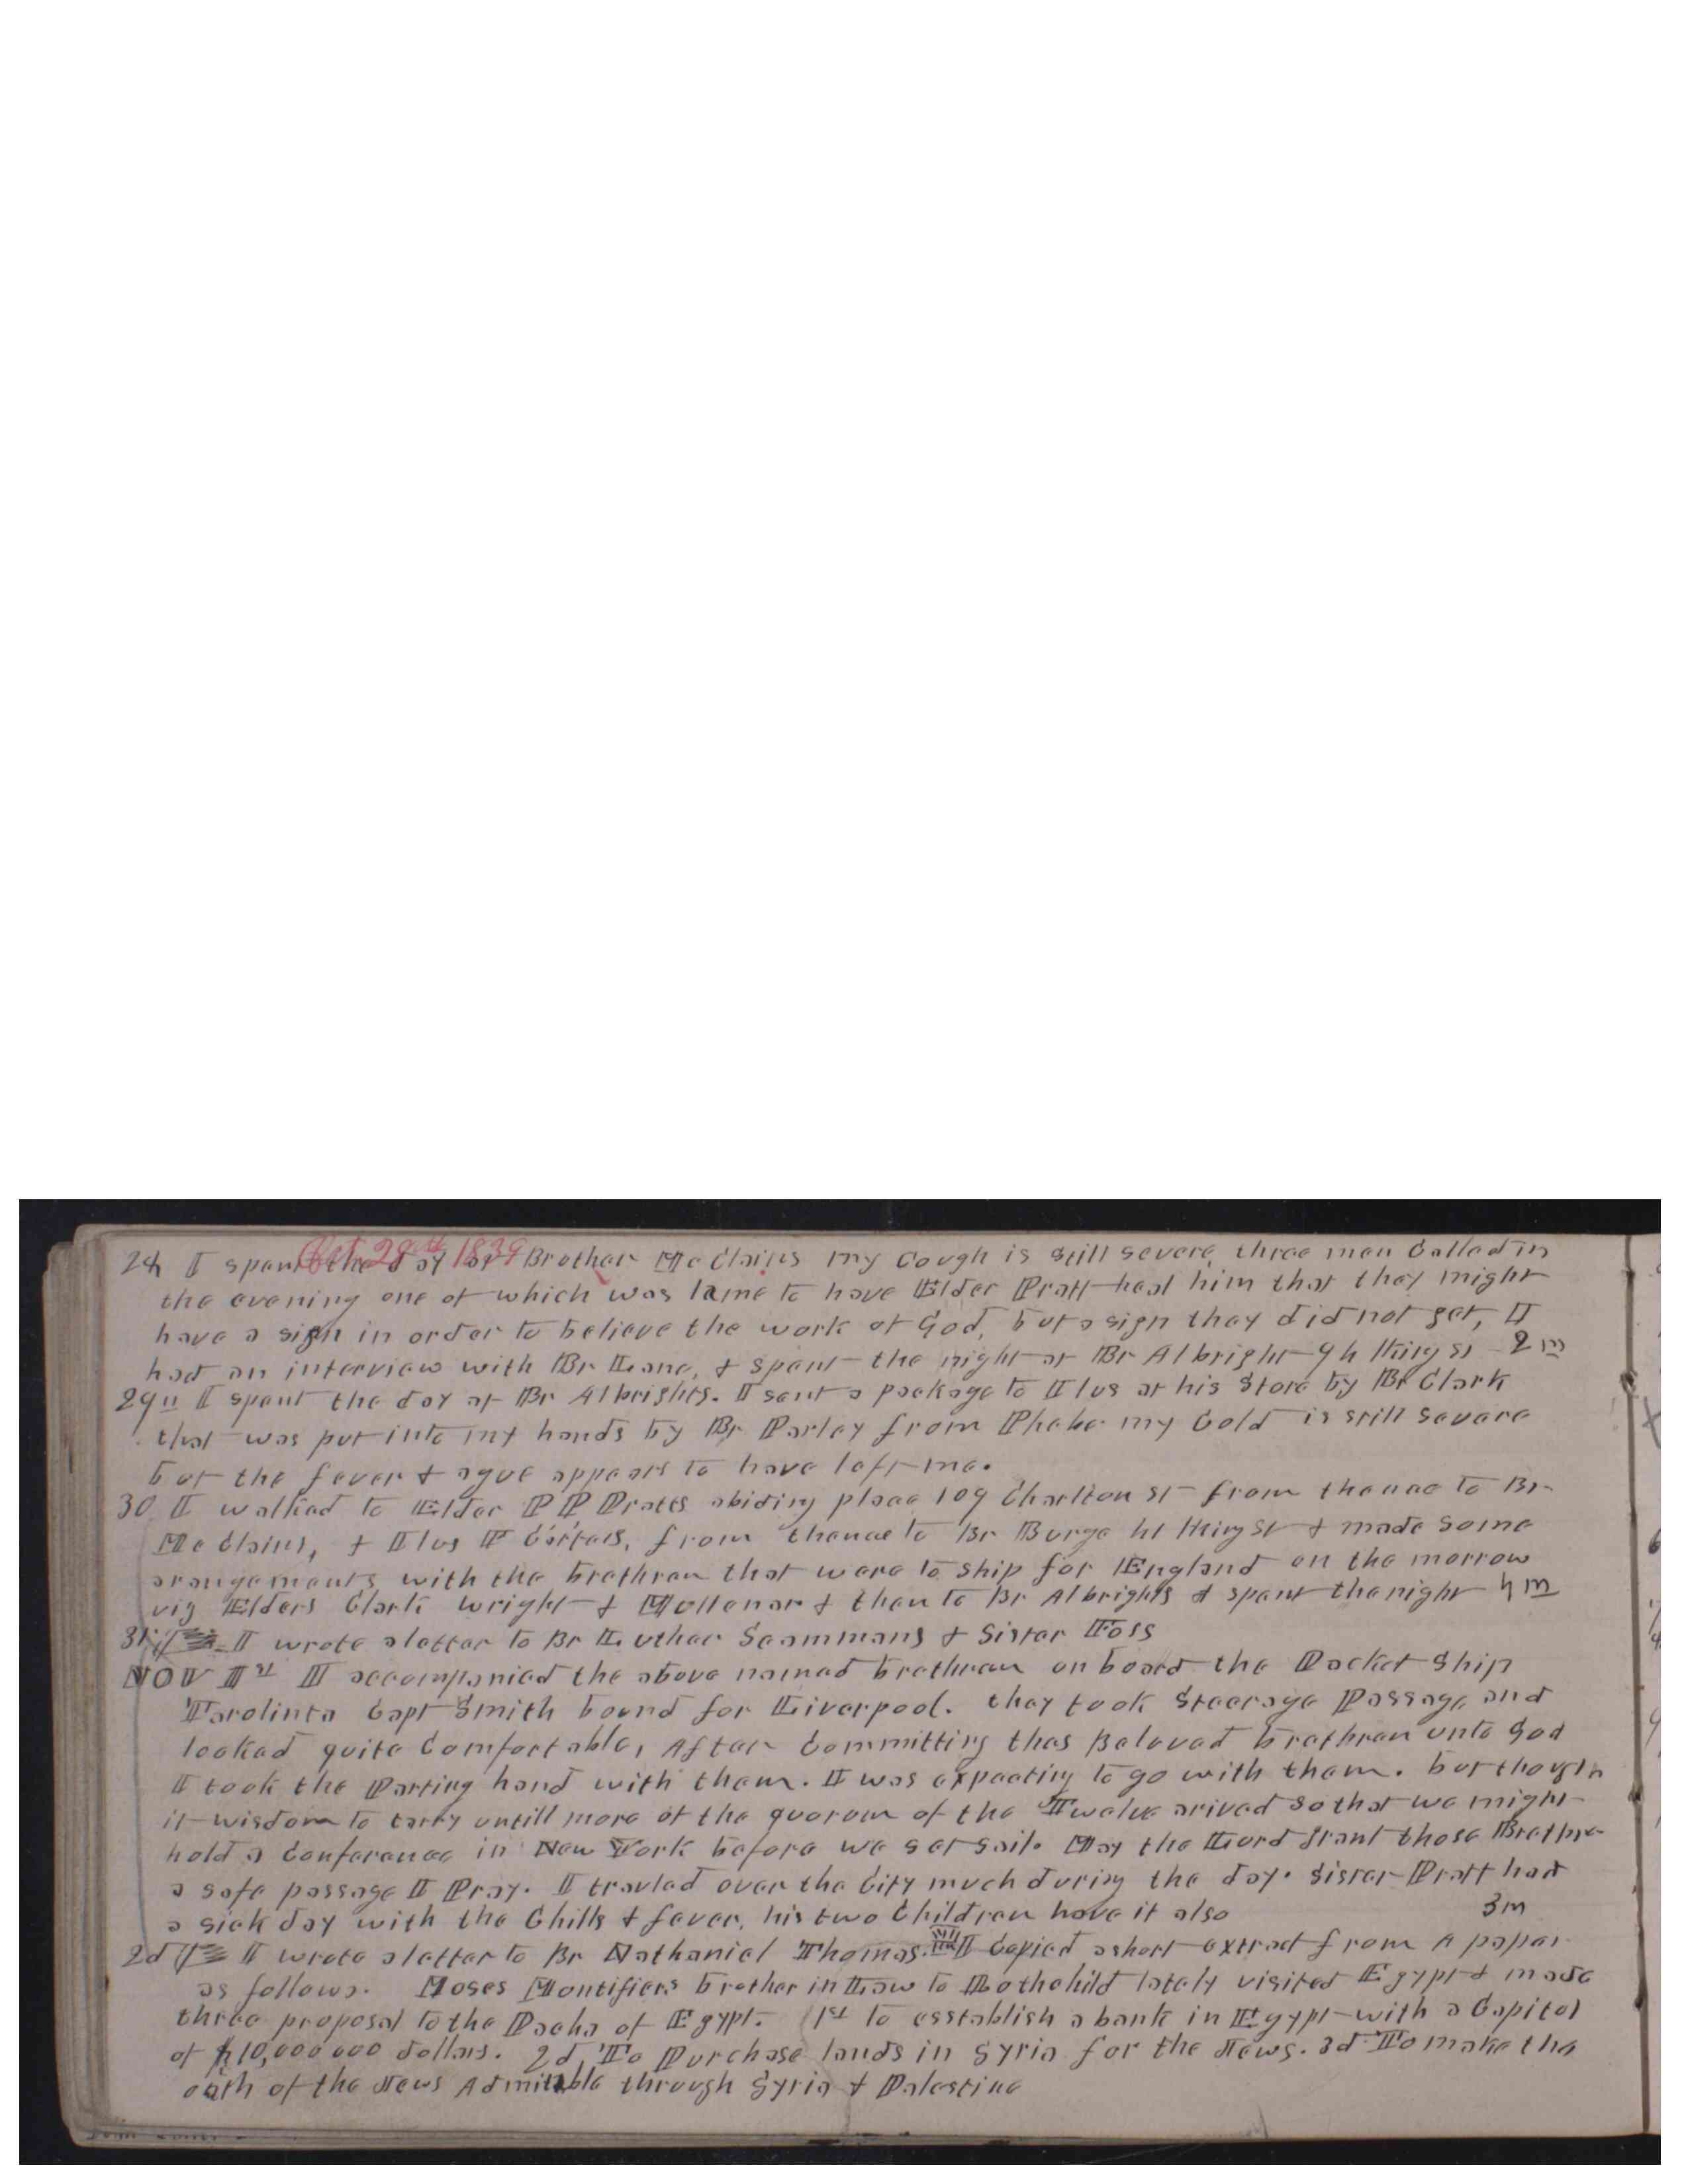 Oct 28th 1839
28 I spent the day at Brother McClains my Cough is still severe, three men Called in
the evening one of which was lame to have Elder Pratt heal him that they might
have a sign in order to believe the work of God, but a sign they did not get, I
had an interview with Br Lane, & spent the night at Br Albright 94 King St 2 m
29 I spent the day at Br Albrights. I sent a package to Ilus at his Store by Br Clark
that was put into my hands by Br Parley from Phebe my Cold is still severe
but the fever & ague appears to have left me.
30 I walked to Elder P P Pratts abiding place 109 Charlton St from thence to Br
McClains, & Ilus F Carters, from thence to Br Burge King St & made some
arangements with the brethren that were to ship for England on the morrow
viz Elders Clark wright & Mullenar & then to Br Albrights & spent the night 4 m
31 I wrote a letter to Br Luther Scammans & Sister Foss
NOV Ist I accompanied the above named brethren on board the Packet Ship
Tarolinta Capt Smith bound for Liverpool. they took Steerage Passage and
looked quite Comfortable, After Committing thes Beloved brethren unto God
I took the Parting hand with them. I was expecting to go with them. but though
it wisdom to tarry untill more of the quorum of the Twelve arived so that we might
hold a Conference in New York before we set sail. May the Lord grant those Brethre
a safe passage I Pray. I travled over the City much during the day. Sister Pratt had
a sick day with the Chills & fever, his two Children have it also 3 m
2d I wrote a letter to Br Nathaniel Thomas. I Copied a short extract from A paper
as follows. Moses Montifiers brother in Law to Rothchild lately visited Egypt & made
three proposal to the Pacha of Egypt. 1st to esstablish a bank in Egypt with a Capitol
of $10,000000 dollars. 2d, To Purchase lands in Syria for the Jews. 3d To make the
oath of the Jews Admitable through Syria & Palestine